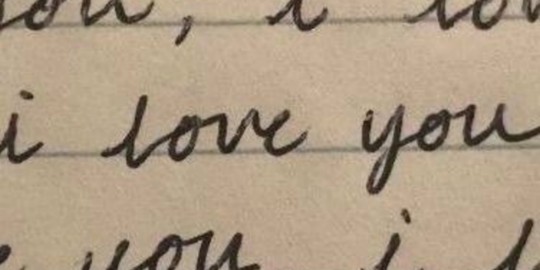 you, i lov
i love you
e you i l